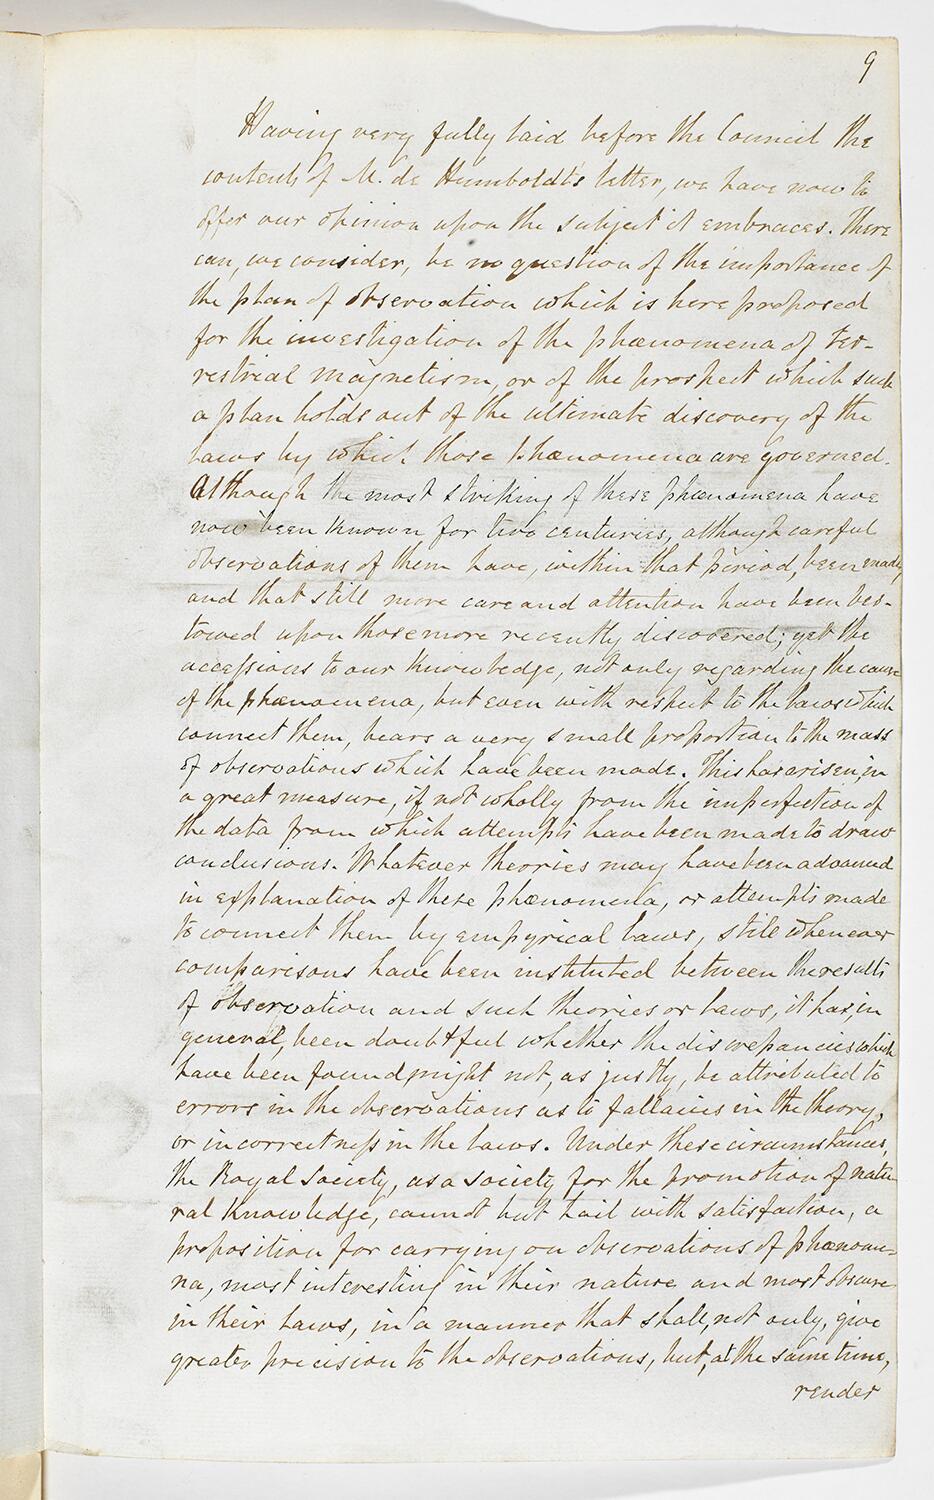 9
Having very fully laid before the Council the
contents of M. de Humboldt's letter, we have now to
offer our opinion upon the subject it embraces. There
can, we consider, be no question of the importance of
the plan of observation which is here proposed
for the investigation of the phænomena of ter-
restrial magnetism, or of the prospect which such
a plan holds out of the ultimate discovery of the
laws by which those phænomena are governed.
Although the most striking of these phænomena have
now been known for two centuries, although careful
observations of them have, within that period, been made,
and that still more care and attention have been bes-
towed upon those more recently discovered; yet the
accessions to our knowledge, not only regarding the cause
of the phænomena, but even with respect to the laws which
connect them, bears a very small proportion to the mass
of observations which have been made. This has arisen, in
a great measure, if not wholly from the imperfection of
the data from which attempts have been made to draw
conclusions. Whatever theories may have been advanced
in explanation of these phænomena, or attempts made
to connect them by empyrical laws, still whenever
comparisons have been instituted between the results
of observation and such theories or laws, it has, in
general, been doubtful whether the discrepancies which
have been found might not, as justly, be attributed to
errors in the observations as to fallacies in the theory,
or incorrectness in the laws. Under these circumstances,
the Royal Society, as a society for the promotion of natu-
ral knowledge, cannot but hail with satisfaction, a
proposition for carrying on observations of phænome-
na, most interesting in their nature and most obscure
in their laws, in a manner that shall, not only, give
greater precision to the observations, but, at the same time,
render